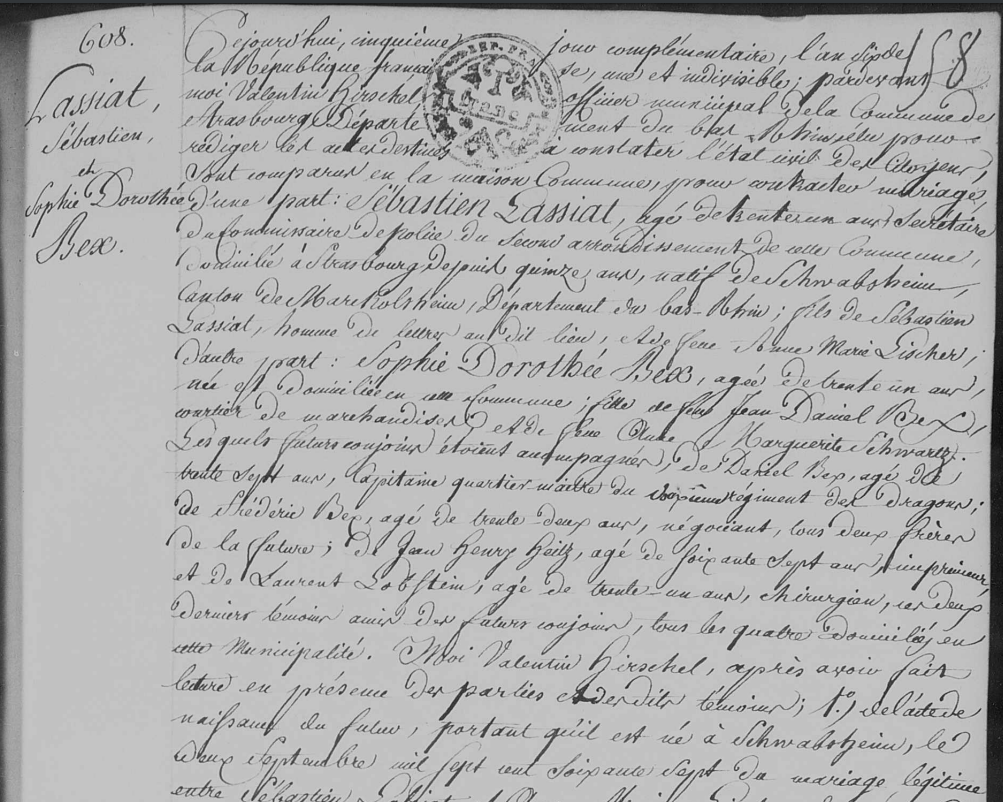 608.
158
Lassiat,
Sébastien,
et
Sophie Dorothée
Bex.
Cejourd'hui, cinquième jour complémentaire, l'an six de
la République française, une et indivisible; pardevant
moi Valentin Hirschel officier municipal de la Commune de
Strasbourg Département du bas-Rhin élu pour
rédiger les actes destinés à constater l'état civil des Citoyens,
Sont comparus en la maison Commune, pour contracter mariage,
d'une part: Sébastien Lassiat, agé de trente un ans, Secrétaire
du Commissaire de police du Second arrondissement de cette Commune,
domicilié à Strasbourg depuis quinze ans, natif de Schwabsheim,
Canton de Marckolsheim, Département du bas-Rhin; fils de Sébastien
Lassiat, homme de lettres au dit lieu, et de feue Anne Marie Lischer;
d'autre part: Sophie Dorothée Bex, agée de trente un ans,
née et domiciliée en cette Commune; fille de feu Jean Daniel Bex,
courtier de marchandises, et de feue Marguerite Schwartz.
Lesquels futurs conjoins étoient accompagnés, de Daniel Bex, agé de
trente sept ans, Capitaine quartier-maitre du régiment des dragons;
de Frédéric Bex, agé de trente deux ans, négociant, tous deux frères
de la future; de Jean Henry Heitz, agé de soixante sept ans, imprimeur,
et de Laurent Lobstein, agé de trente-un ans, chirurgien, ces deux
derniers témoins amis des futurs conjoins, tous les quatre domiciliés en
cette Municipalité. Moi Valentin Hirschel, après avoir fait
lecture en présence des parties et desdits témoins; 1.º) de l'acte de
naissance du futur, portant qu'il est né à Schwabsheim, le
deux Septembre mil sept cent soixante sept du mariage légitime
entre Sébastien Lassiat